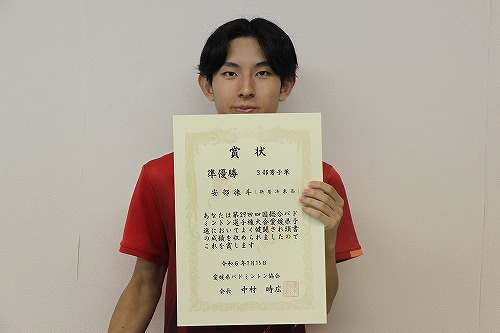 賞状
準優勝 3部男子単
安部 (新居浜東高)
あなたは第29回四国総合バド
ミントン選手権大会愛媛県予
選においてよく健闘され頭書
の成績を収められましたので
これを賞します
令和6年7月15日
愛媛県バドミントン協会
会長 中村 時広